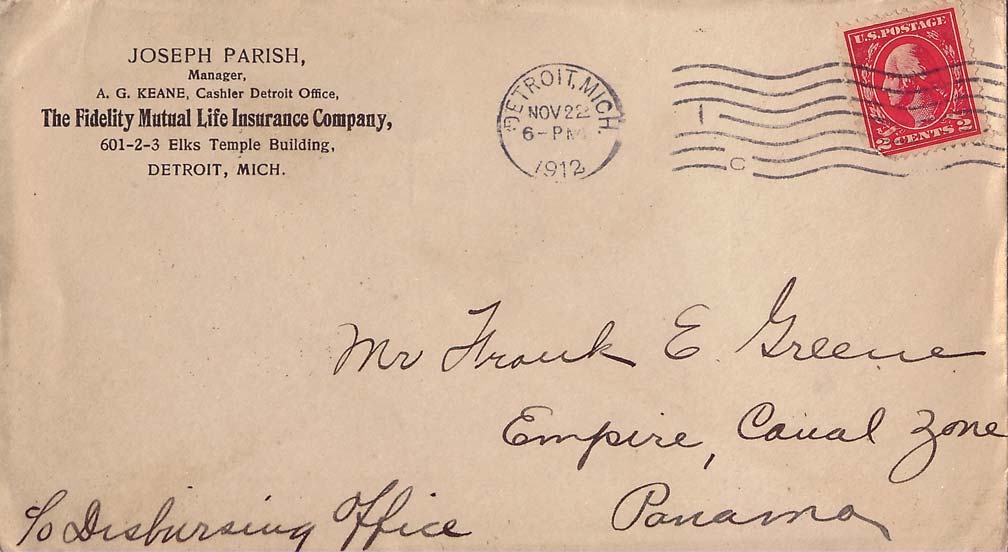 JOSEPH PARISH,
Manager,
A. G. KEANE, Cashier Detroit Office,
The Fidelity Mutual Life Insurance Company,
601-2-3 Elks Temple Building,
DETROIT, MICH.
DETROIT, MICH.
NOV 22
6-PM
1912
1
C
U.S. POSTAGE
2 CENTS 2
Mr Frank E. Greene
Empire, Canal Zone
Panama
c/o Disbursing Office